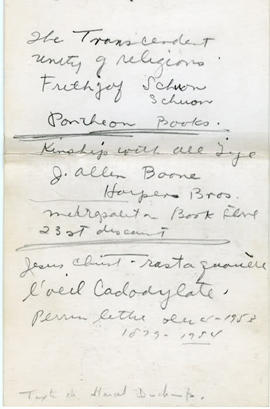 The Transcendent
unity of religions
Frithjof Schuon
Schuon
Pantheon Books.
Kinship with all Life
J. Allen Boone
Harpers Bros.
Metropolitan Book
23 st discount
Jesus Christ - rastaquouère
l'oeil Cadodylate.
1879 - 1954
Texte de Marcel Duchamp.